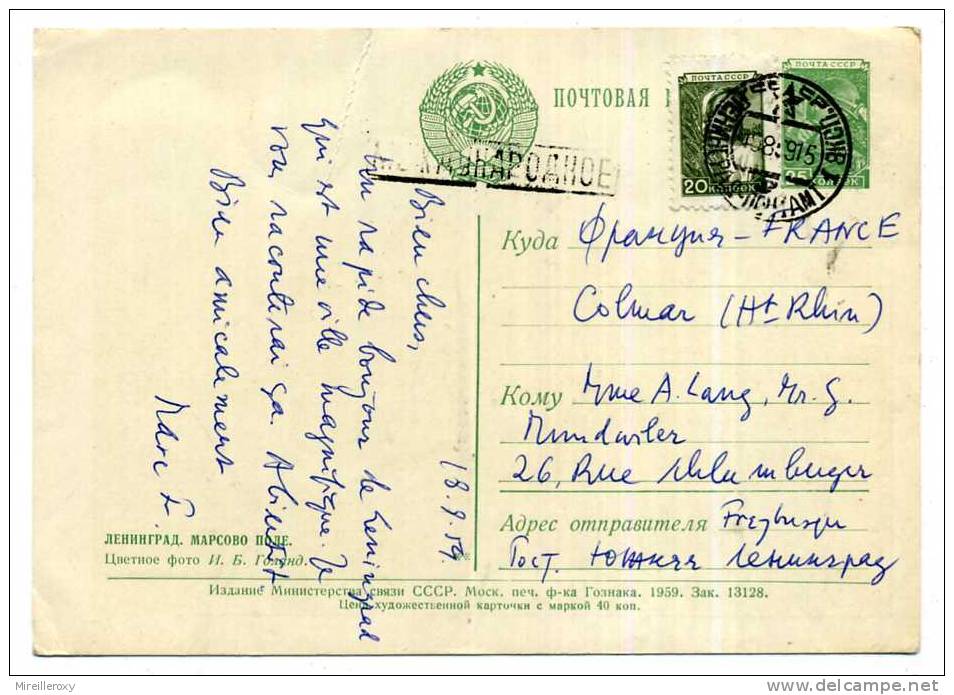 ПОЧТОВАЯ
МЕЖДУНАРОДНОЕ
ПОЧТА СССР
20 КОПЕЕК
ПОЧТА СССР
25 КОПЕЕК
18.9.59
Bien chers,
Un rapide bonjour de Leningrad
qui est une ville magnifique. Je
vous raconterai ça. A bientôt
Bien amicalement
Marc F.
Куда Франция - FRANCE
Colmar (Ht Rhin)
Кому Mme A. Lang, Mr. G.
26, Rue
Адрес отправителя
Гост. Южная Ленинград
ЛЕНИНГРАД. МАРСОВО ПОЛЕ.
Цветное фото И. Б. Голанд.
Издание Министерства связи СССР. Моск. печ. ф-ка Гознака. 1959. Зак. 13128.
Цена художественной карточки с маркой 40 коп.
Mireilleroxy
delcampe.net